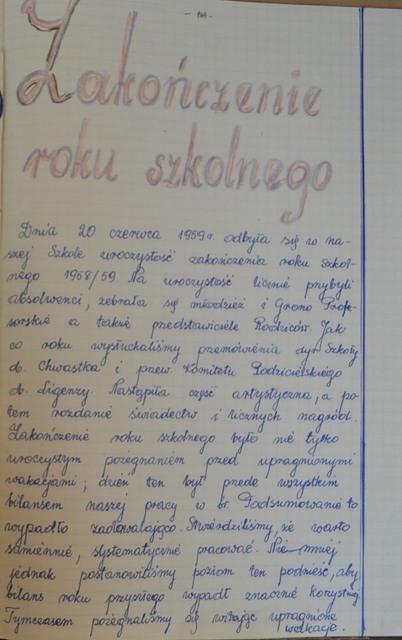 Zakończenie
roku szkolnego
Dnia 20 czerwca 1959 r. odbyła się w na-
szej Szkole uroczystość zakończenia roku szkol-
nego 1958/59. Na uroczystość licznie przybyli
absolwenci, zebrała się młodzież i Grono Profe-
sorskie a także przedstawiciele Rodziców. Jak
co roku wysłuchaliśmy przemówienia dyr. Szkoły
ob. Chwastka i przew. Komitetu Rodzicielskiego
ob. Ligenzy. Nastąpiła część artystyczna, a po
tem rozdanie świadectw i licznych nagród.
Zakończenie roku szkolnego było nie tylko
uroczystym pożegnaniem przed upragnionymi
wakacjami; dzień ten był przede wszystkim
bilansem naszej pracy w br. Podsumowanie to
wypadło zadowalająco. Stwierdziliśmy, że warto
sumiennie, systematycznie pracować. Nie mniej
jednak postanowiliśmy poziom ten podnieść, aby
bilans roku przyszłego wypadł znacznie korzystniej.
Tymczasem pożegnaliśmy się witając upragnione
wakacje.